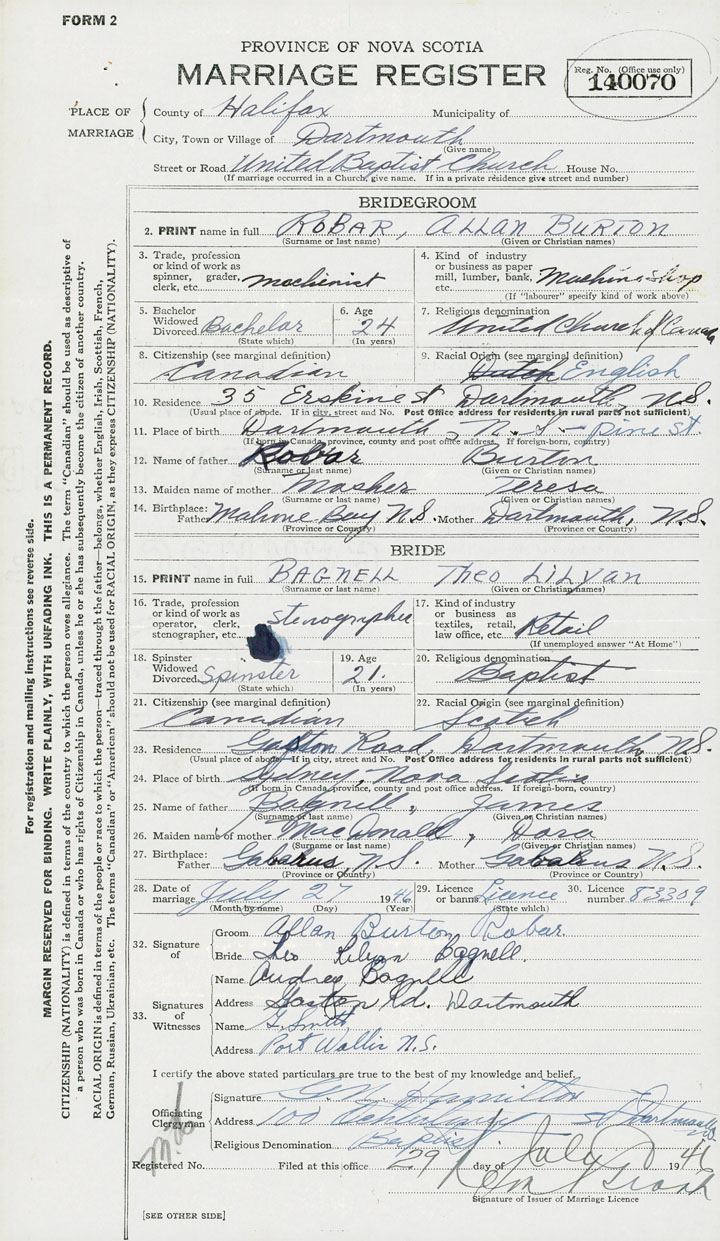 FORM 2
PROVINCE OF NOVA SCOTIA
MARRIAGE REGISTER
Reg. No. (Office use only)
140070
PLACE OF MARRIAGE
County of Halifax Municipality of
City, Town or Village of Dartmouth
(Give name)
Street or Road United Baptist Church House No.
(If marriage occurred in a Church, give name. If in a private residence give street and number)
BRIDEGROOM
2. PRINT name in full ROBAR, ALLAN BURTON
(Surname or last name) (Given or Christian names)
3. Trade, profession or kind of work as spinner, grader, clerk, etc. machienist
4. Kind of industry or business as paper mill, lumber, bank, etc. Machine shop
(If "labourer" specify kind of work above)
5. Bachelor Widowed Divorced Bachelor
(State which)
6. Age 24
(In years)
7. Religious denomination United Church of Canada
8. Citizenship (see marginal definition) Canadian
9. Racial Origin (see marginal definition) Dutch English
10. Residence 35 Erskine st Dartmouth, N.S.
(Usual place of abode. If in city, street and No. Post Office address for residents in rural parts not sufficient)
11. Place of birth Dartmouth, N.S. - Pine st.
(If born in Canada, province, county and post office address. If foreign-born, country)
12. Name of father Robar Burton
(Surname or last name) (Given or Christian names)
13. Maiden name of mother Mosher Teresa
(Surname or last name) (Given or Christian names)
14. Birthplace: Father Mahone Bay N.S. Mother Dartmouth, N.S.
(Province or Country) (Province or Country)
BRIDE
15. PRINT name in full BAGNELL Theo LiLyan
(Surname or last name) (Given or Christian names)
16. Trade, profession or kind of work as operator, clerk, stenographer, etc. stenographer
17. Kind of industry or business as textiles, retail, law office, etc. Retail
(If unemployed answer "At Home")
18. Spinster Widowed Divorced Spinster
(State which)
19. Age 21.
(In years)
20. Religious denomination Baptist
21. Citizenship (see marginal definition) Canadian
22. Racial Origin (see marginal definition) Scotch
23. Residence Gaston Road, Dartmouth N.S.
(Usual place of abode. If in city, street and No. Post Office address for residents in rural parts not sufficient)
24. Place of birth Sydney, Nova Scotia
(If born in Canada, province, county and post office address. If foreign-born, country)
25. Name of father Bagnell, James
(Surname or last name) (Given or Christian names)
26. Maiden name of mother MacDonald, Dora
(Surname or last name) (Given or Christian names)
27. Birthplace: Father Gabarus, N.S. Mother Gabarus N.S.
(Province or Country) (Province or Country)
28. Date of marriage July 27 1946
(Month by name) (Day) (Year)
29. Licence or banns Licence
(State which)
30. Licence number 83309
32. Signature of
Groom Allan Burton Robar.
Bride Theo Lilian Bagnell.
33. Signatures of Witnesses
Name Audrey Bagnell
Address Gaston Rd. Dartmouth
Name G. Smith
Address Port Wallis N.S.
I certify the above stated particulars are true to the best of my knowledge and belief.
Officiating Clergyman
Signature Hamilton
Address 100 st Dartmouth
Religious Denomination Baptist
Registered No. Filed at this office 29 day of July 1946
Signature of Issuer of Marriage Licence
[SEE OTHER SIDE]
For registration and mailing instructions see reverse side.
MARGIN RESERVED FOR BINDING. WRITE PLAINLY, WITH UNFADING INK. THIS IS A PERMANENT RECORD.
CITIZENSHIP (NATIONALITY) is defined in terms of the country to which the person owes allegiance. The term "Canadian" should be used as descriptive of
a person who was born in Canada or who has rights of Citizenship in Canada, unless he or she has subsequently become the citizen of another country.
RACIAL ORIGIN is defined in terms of the people or race to which the person—traced through the father—belongs, whether English, Irish, Scottish, French,
German, Russian, Ukrainian, etc. The terms "Canadian" or "American" should not be used for RACIAL ORIGIN, as they express CITIZENSHIP (NATIONALITY).